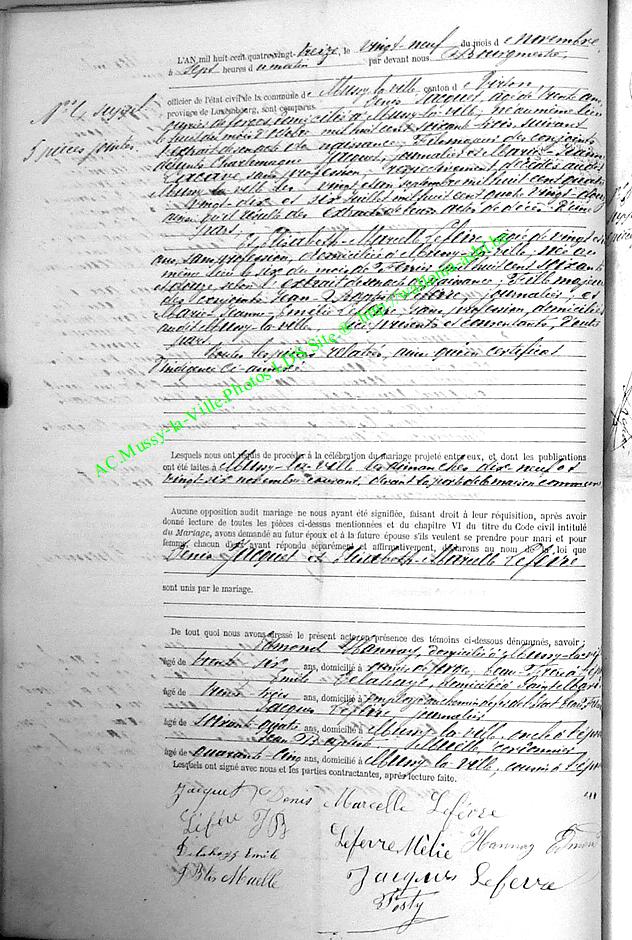 L'AN mil huit cent quatre-vingt-treize, le vingt-neuf du mois de Novembre
à sept heures du matin par devant nous Bourgmestre,
officier de l'état civil de la commune de Mussy-la-ville, canton de Virton,
province de Luxembourg, sont comparus Denis Jacquet, âgé de trente ans,
N° 4
5 pièces jointes.
ouvrier de forges, domicilié à Mussy-la-ville, né au même lieu
mil huit cent soixante-trois, suivant
extrait de son acte de naissance; fils majeur des conjoints
défunts Charlemagne Jacquet, journalier et Marie-Jeanne
sans profession, décédés audit
Mussy-la-ville les vingt septembre mil huit cent quatre
vingt-dix et six juillet mil huit cent quatre vingt
ainsi qu'il résulte des extraits de leurs actes de décès. D'une
part.
Et Elisabeth-Marcelle Lefèvre, âgée de vingt et
ans, sans profession, domiciliée à Mussy-la-ville, née au
même lieu le six du mois de mil huit cent soixante
et douze selon l'extrait de son acte de naissance; fille majeure
des conjoints Jean-Baptiste Lefèvre, journalier, et
Marie-Jeanne sans profession, domiciliés
audit Mussy-la-ville. Ici présents et consentants, d'autre
part.
Toutes les pièces relatées, ainsi qu'un certificat
d'indigence ci-annexé.
AC.Mussy-la-Ville.Photos LDS.Site @ http://www.lama-asbl.be
Lesquels nous ont requis de procéder à la célébration du mariage projeté entre eux, et dont les publications
ont été faites à Mussy-la-ville les dimanches dix-neuf et
vingt-six novembre courant, devant la porte de la maison commune
Aucune opposition audit mariage ne nous ayant été signifiée, faisant droit à leur réquisition, après avoir
donné lecture de toutes les pièces ci-dessus mentionnées et du chapitre VI du titre du Code civil intitulé
du Mariage, avons demandé au futur époux et à la future épouse s'ils veulent se prendre pour mari et pour
femme, chacun d'eux ayant répondu séparément et affirmativement, déclarons au nom de la loi que
Denis Jacquet et Elisabeth-Marcelle Lefèvre
sont unis par le mariage.
De tout quoi nous avons dressé le présent acte en présence des témoins ci-dessous dénommés, savoir:
Edmond Hannay, domicilié à Mussy-la-ville
âgé de trente six ans, domicilié à ouvrier de forge, beau-frère à l'époux
Emile Delahaye, domicilié à Sainte-Marie
âgé de trente trois ans, domicilié à employé au chemin de fer de l'état
Jacques Lefèvre journalier
âgé de soixante quatre ans, domicilié à Mussy-la-ville, oncle à l'épouse
Jean Baptiste Muelle, cordonnier
âgé de quarante-cinq ans, domicilié à Mussy-la-ville, cousin à l'épouse
Lesquels ont signé avec nous et les parties contractantes, après lecture faite.
Jacquet Denis Marcelle Lefèvre
Lefèvre JB Lefevre Mélie Hannay Edmond
Delahaye Emile
J Btis Muelle Jacques Lefevre
Posty